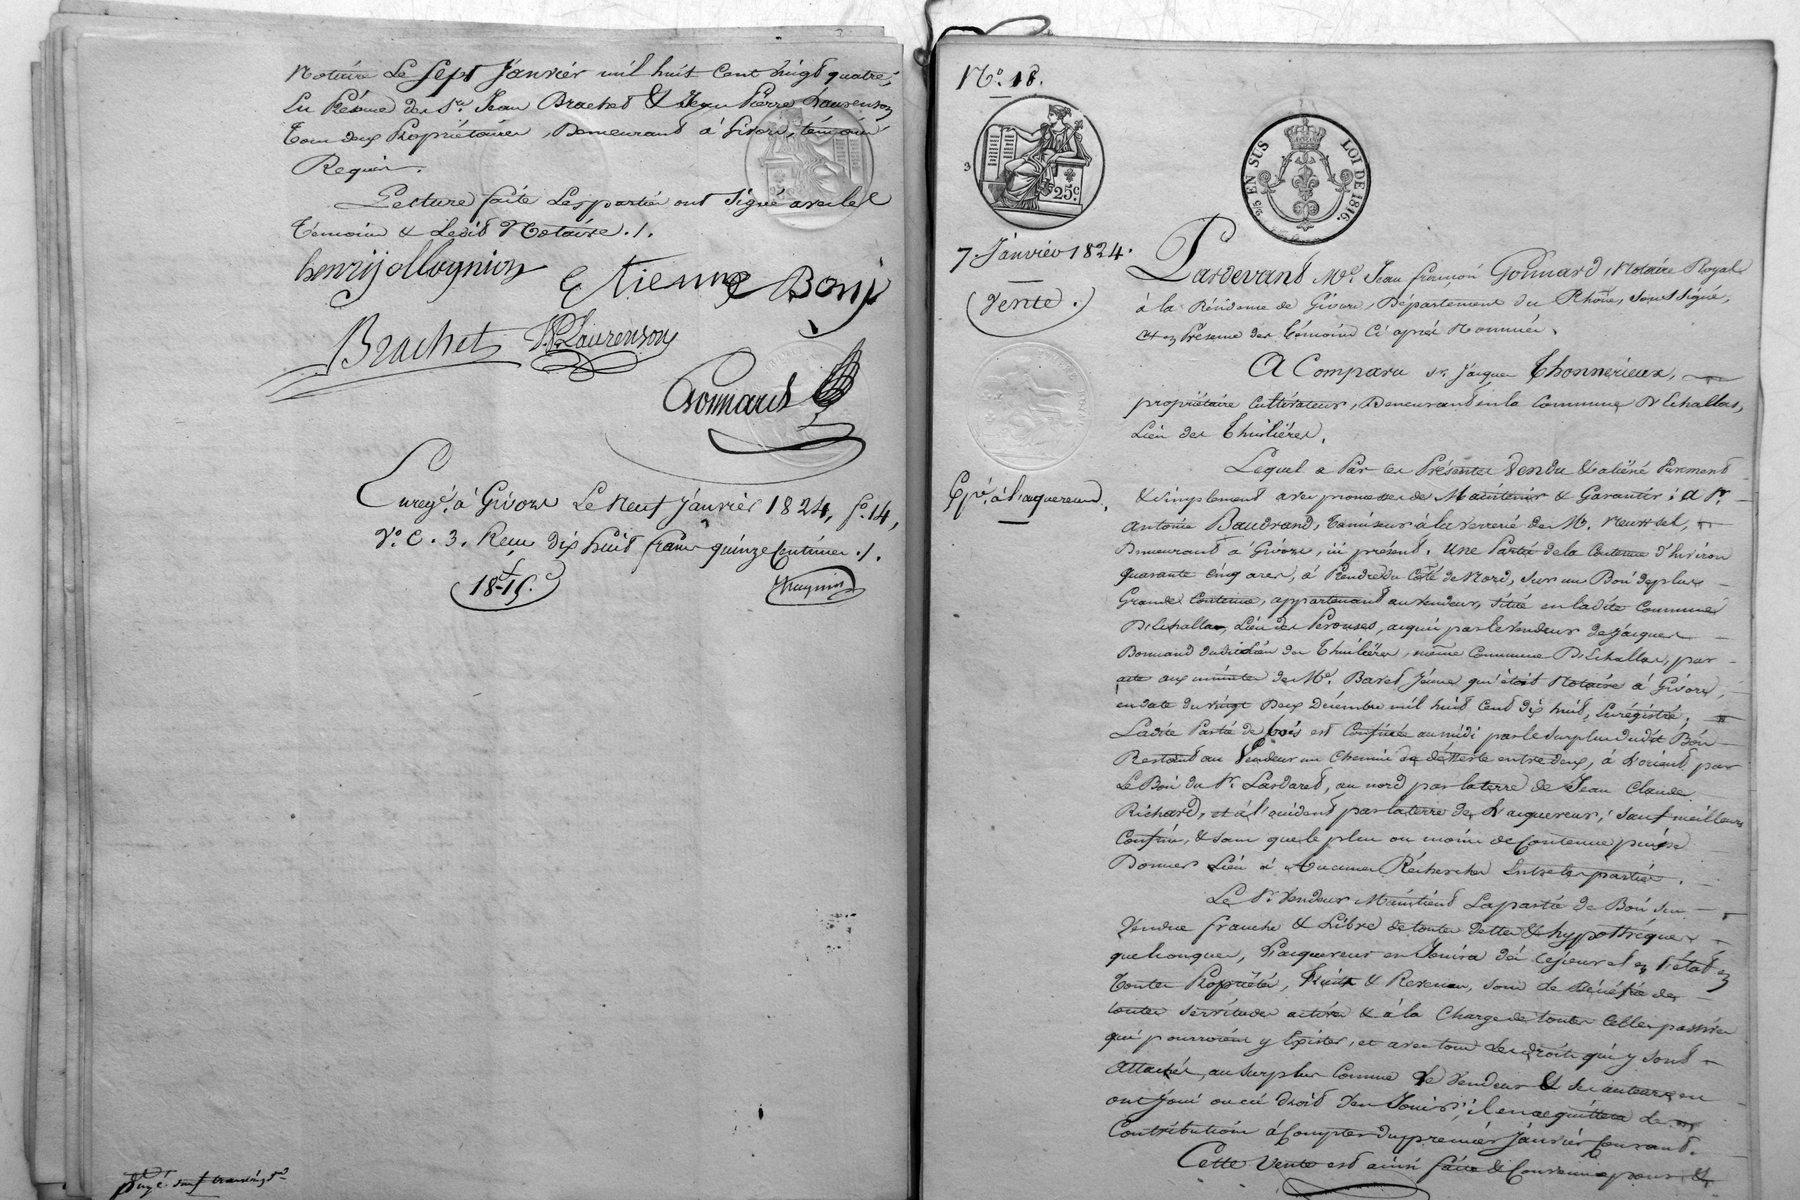 Notaire Le Sept Janvier mil huit Cent vingt quatre,
En Présence des Srs. Jean Brachet & Jean Pierre Laurenson
Tous deux Propriétaires, Demeurant à Givors, témoins
Requis.
Lecture faite Les parties ont Signé avec les
Témoins & Ledit Notaire ./.
henry ollagnion Etienne Bonj
Brachet JP Laurenson
Gonnard
Enregé. à Givors Le Neuf Janvier 1824, fo. 14,
Vo. C. 3. Reçu Dix huit francs quinze Centimes ./.
18f-15c.
No. 18.
25c.
25 EN SUS LOI DE 1816.
7 Janvier 1824.
(Vente.)
Expé. à l'acquereur.
Pardevant Me. Jean françois Gonnard, Notaire Royal
à la Résidence de Givors, Département du Rhône, soussigné,
et en Présence des témoins Ci après Nommés.
A Comparu sr. Jacques Thonnerieux,
propriétaire Cultivateur, Demeurant en la Commune D'Echallas,
Lieu des Thuilières.
Lequel a Par ces Présentes Vendu & aliéné Purement
& Simplement avec promesse de Maintenir & Garantir; a Sr.
Antoine Baudrand, Tamiseur à la verrerie de Mr. Neuvesel,
Demeurant à Givors, ici présent. Une Partie de la Contenue d'Environ
quarante cinq ares, à Prendre du Côté de Nord, sur un Bois de plus
Grande Contenue, appartenant au vendeur, situé en ladite Commune
D'Echallas, Lieu des Perouses, acquis par le vendeur de Jacques
Bonnand dudit Lieu des Thuilières, même Commune D'Echallas, par
acte aux minutes de Me. Baret Jeune qu'était Notaire à Givors,
en date du vingt Deux Décembre mil huit Cent dix huit, Enregistré;
Ladite Partie de bois est Confinée au midi par le surplus dudit Bois
Restant au Vendeur un Chemin de déserte entre deux, à L'orient par
Le Bois du Sr. Lardaret, au nord par la terre de Jean Claude
Richard, et à l'occident par la terre de L'acquereur; sauf meilleurs
Confins, & sans que le plus ou moins de Contenue puisse
Donner Lieu à Aucunes Recherches Entre les parties.
Le Sr. Vendeur Maintient La partie de Bois Sus
Vendue franche & Libre de toutes dettes & hypothèques
quelconques, L'acquereur en Jouira dès ce jour et en l'état en
Toutes Propriétés, Fruits & Revenus, sous le Bénéfice des
toutes servitudes actives & à la Charge de toutes Celles passives
qui pourroient y Exister, et avec tous les droits qui y sont
Attachés, au surplus Comme le Vendeur & ses auteurs en
ont Joui ou eu droit d'en Jouir; il en acquittera les
Contributions à Compter du premier Janvier Courant.
Cette Vente est ainsi faite & Convenue pour &